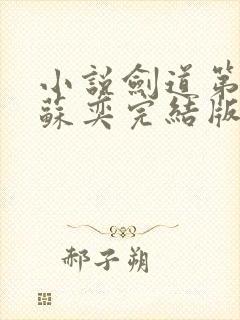 小說劍道第
蘇奕完結版
郝子朔